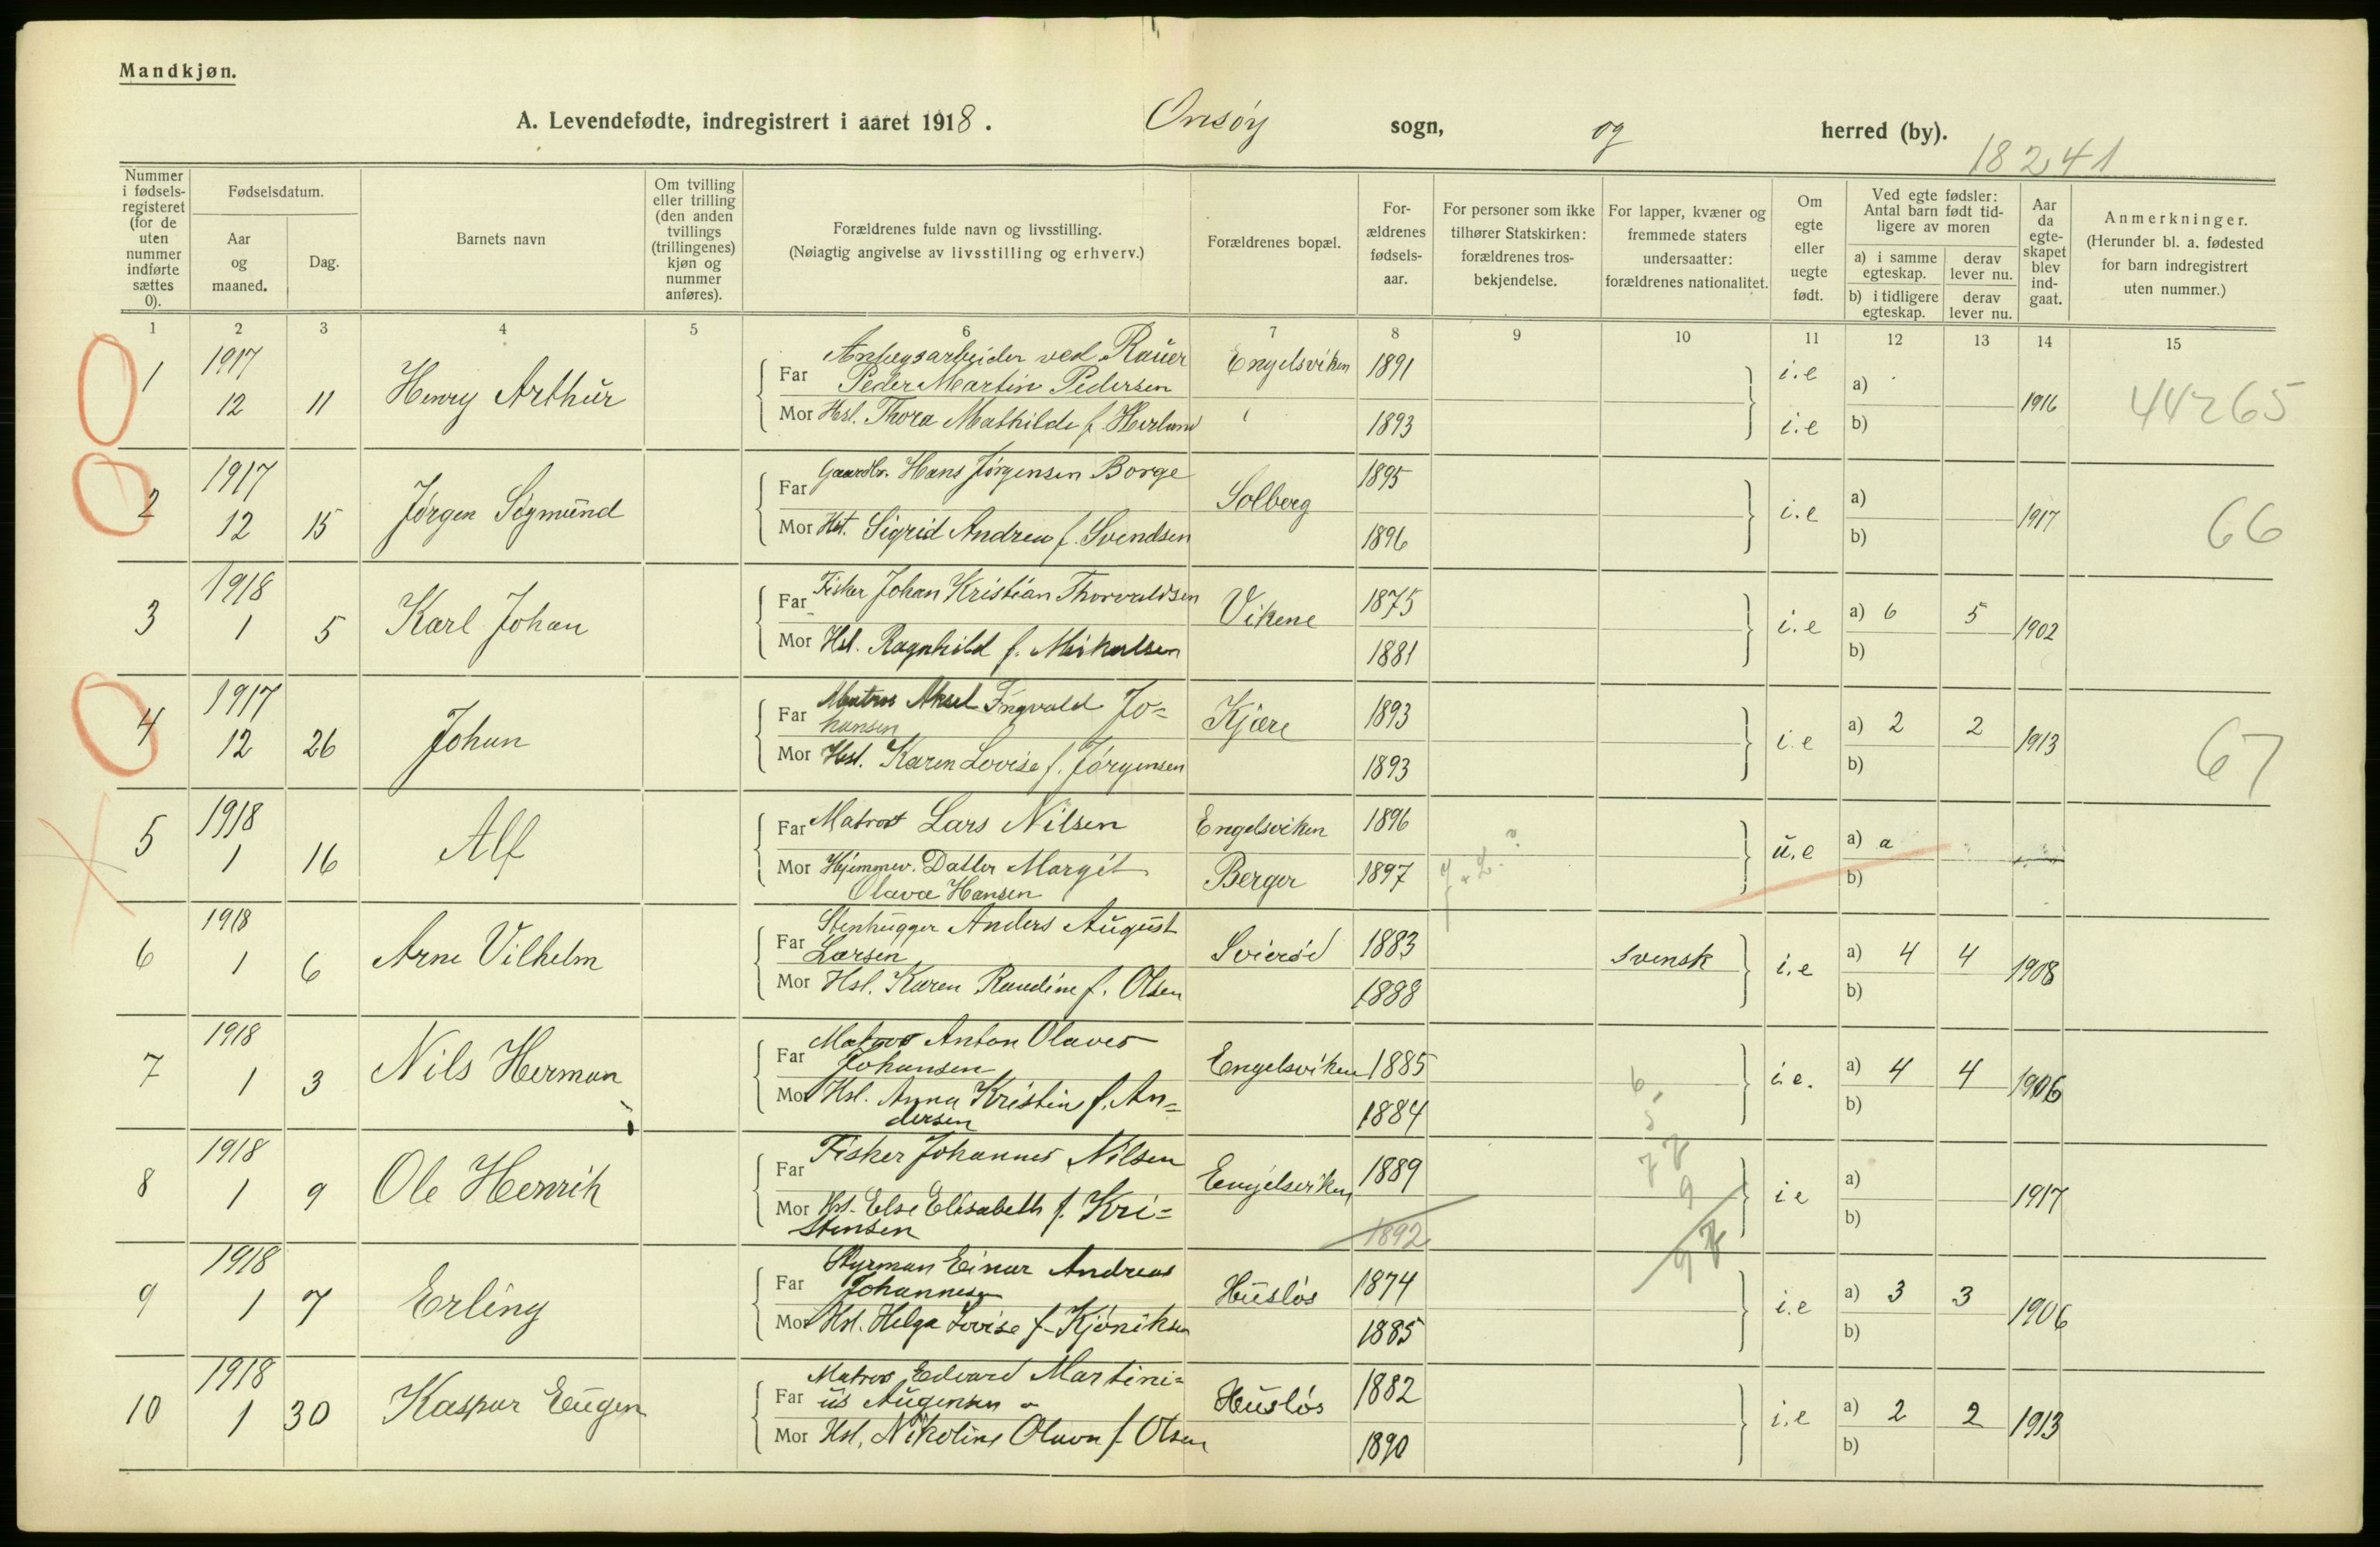 Mandkjøn.
A. Levendefødte, indregistrert i aaret 1918. Onsøy sogn, og herred (by).
18241
Nummer i fødselsregisteret (for de uten nummer indførte sættes 0).
Fødselsdatum.
Aar og maaned.
Dag.
Barnets navn
Om tvilling eller trilling (den anden tvillings (trillingenes) kjøn og nummer anføres).
Forældrenes fulde navn og livsstilling.
(Nøiagtig angivelse av livsstilling og erhverv.)
Forældrenes bopæl.
Forældrenes fødselsaar.
For personer som ikke tilhører Statskirken: forældrenes trosbekjendelse.
For lapper, kvæner og fremmede staters undersaatter: forældrenes nationalitet.
Om egte eller uegte født.
Ved egte fødsler: Antal barn født tidligere av moren
a) i samme egteskap.
derav lever nu.
b) i tidligere egteskap.
derav lever nu.
Aar da egteskapet blev indgaat.
Anmerkninger.
(Herunder bl. a. fødested for barn indregistrert uten nummer.)
1 2 3 4 5 6 7 8 9 10 11 12 13 14 15
1 1917 12 11 Henry Arthur
Far Anlegsarbeider ved Rauer Peder Martin Pedersen Engelsviken 1891 i.e a)
Mor Hsl. Thora Mathilde f. Herlund 1893 i.e b) 1916 44265
2 1917 12 15 Jørgen Sigmund
Far Gaardbr. Hans Jørgensen Borge Solberg 1895 i.e a)
Mor Hst. Sigrid Andrea f. Svendsen 1896 b) 1917 66
3 1918 1 5 Karl Johan
Far Fisker Johan Kristian Thorvaldsen Vikene 1875 i.e a) 6 5 1902
Mor Hsl. Ragnhild f. Mikalsen 1881 b)
4 1917 12 26 Johan
Far Matros Aksel Ingvald Jo=
hansen Kjære 1893 i.e a) 2 2 1913
Mor Hsl. Karen Lovise f. Jørgensen 1893 b) 67
5 1918 1 16 Alf
Far Matros Lars Nilsen Engelsviken 1896 u.e a) a
Mor Hjemmev. Datter Margit
Olava Hansen Berger 1897 b)
6 1918 1 6 Arne Vilhelm
Far Stenhugger Anders August
Larsen 1883 svensk i.e a) 4 4 1908
Mor Hsl. Karen Raudine f. Olsen 1888 b)
7 1918 1 3 Nils Herman
Far Matros Anton Olaves
Johansen Engelsviken 1885 i.e. a) 4 4 1906
Mor Hsl. Anna Kristin f. An=
dersen 1884 b)
8 1918 1 9 Ole Henrik
Far Fisker Johannes Nilsen Engelsviken 1889 i e a) 1917
Mor Hsl. Else Elisabeth f. Kri=
stensen 1892 b)
9 1918 1 7 Erling
Far Styrman Einar Andreas
Johannesen Husløs 1874 i.e a) 3 3 1906
Mor Hsl. Helga Lovise f. Kjøniksen 1885 b)
10 1918 1 30 Kaspar Eugen
Far Matros Edvard Martini=
us Augensen Husløs 1882 i.e a) 2 2 1913
Mor Hsl. Nikoline Olava f. Olsen 1890 b)